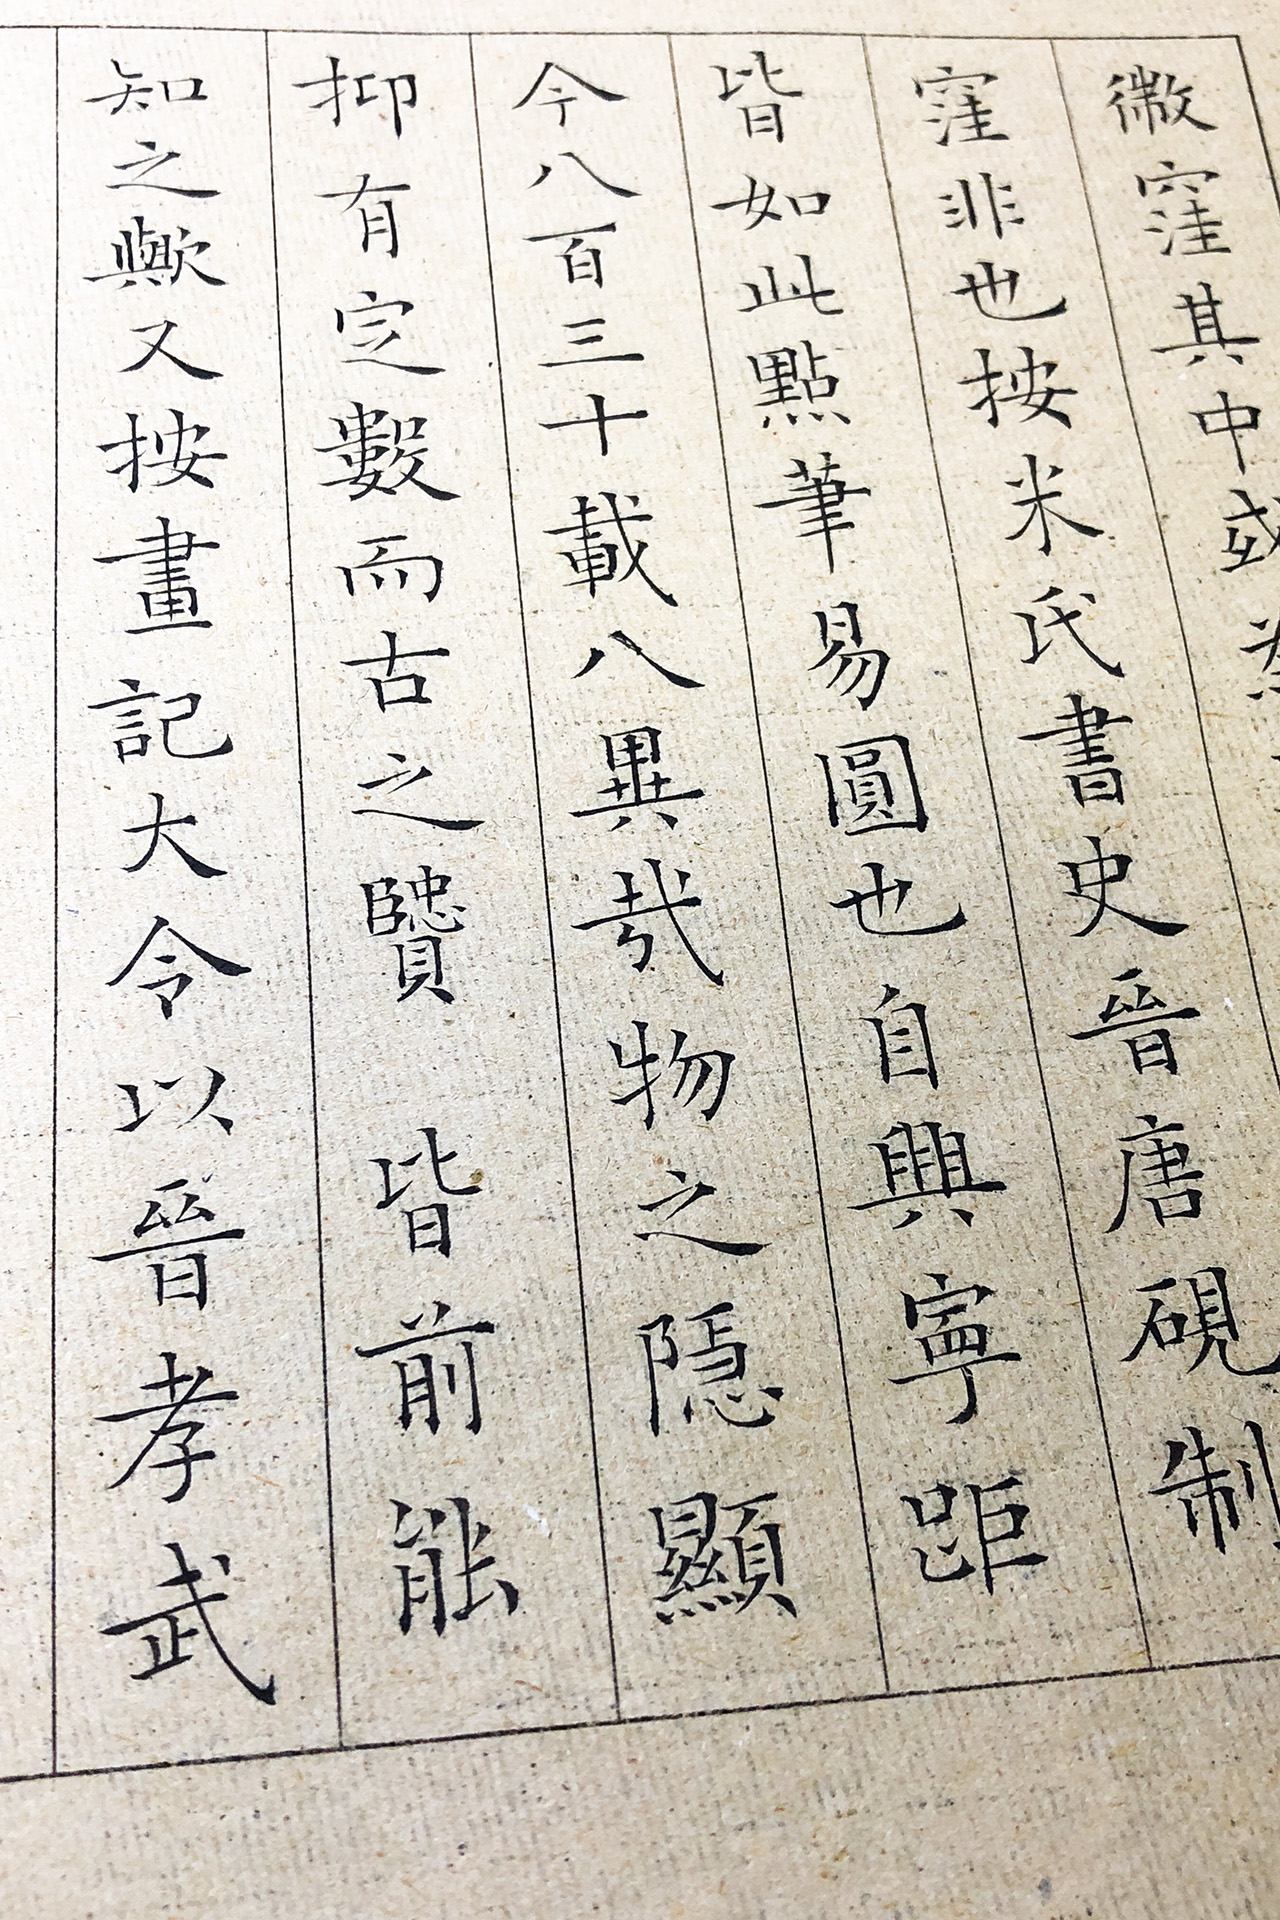 微窪其中或為
窪非也按米氏書史晉唐硯制
皆如此點筆易圓也自興寧距
今八百三十載八異哉物之隱顯
抑有定數而古之賢皆前能
知之歟又按畫記大令以晉孝武